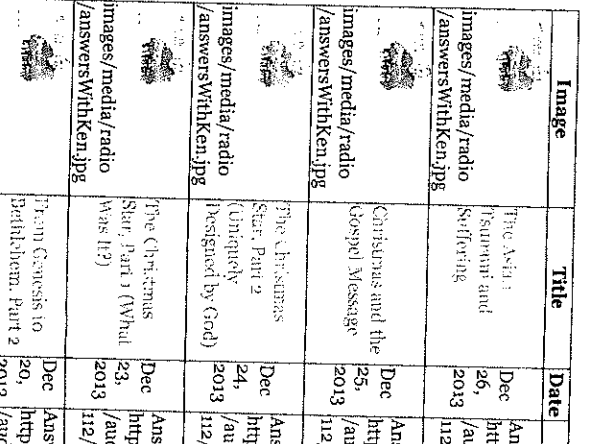 Image
Title
Date
images/media/radio
/answersWithKen.jpg
The Asian
Tsunami and
Suffering
Dec
26,
2013
112
images/media/radio
/answersWithKen.jpg
Christmas and the
Gospel Message
Dec
25,
2013
112
images/media/radio
/answersWithKen.jpg
The Christmas
Star, Part 2
(Uniquely
Designed by God)
Dec
24,
2013
/au
112/
images/media/radio
/answersWithKen.jpg
The Christmas
Star, Part 1 (What
Was It?)
Dec
23,
2013
Ans
http
/au
112/
From Genesis to
Bethlehem, Part 2
Dec
20,
2013
Ans
http